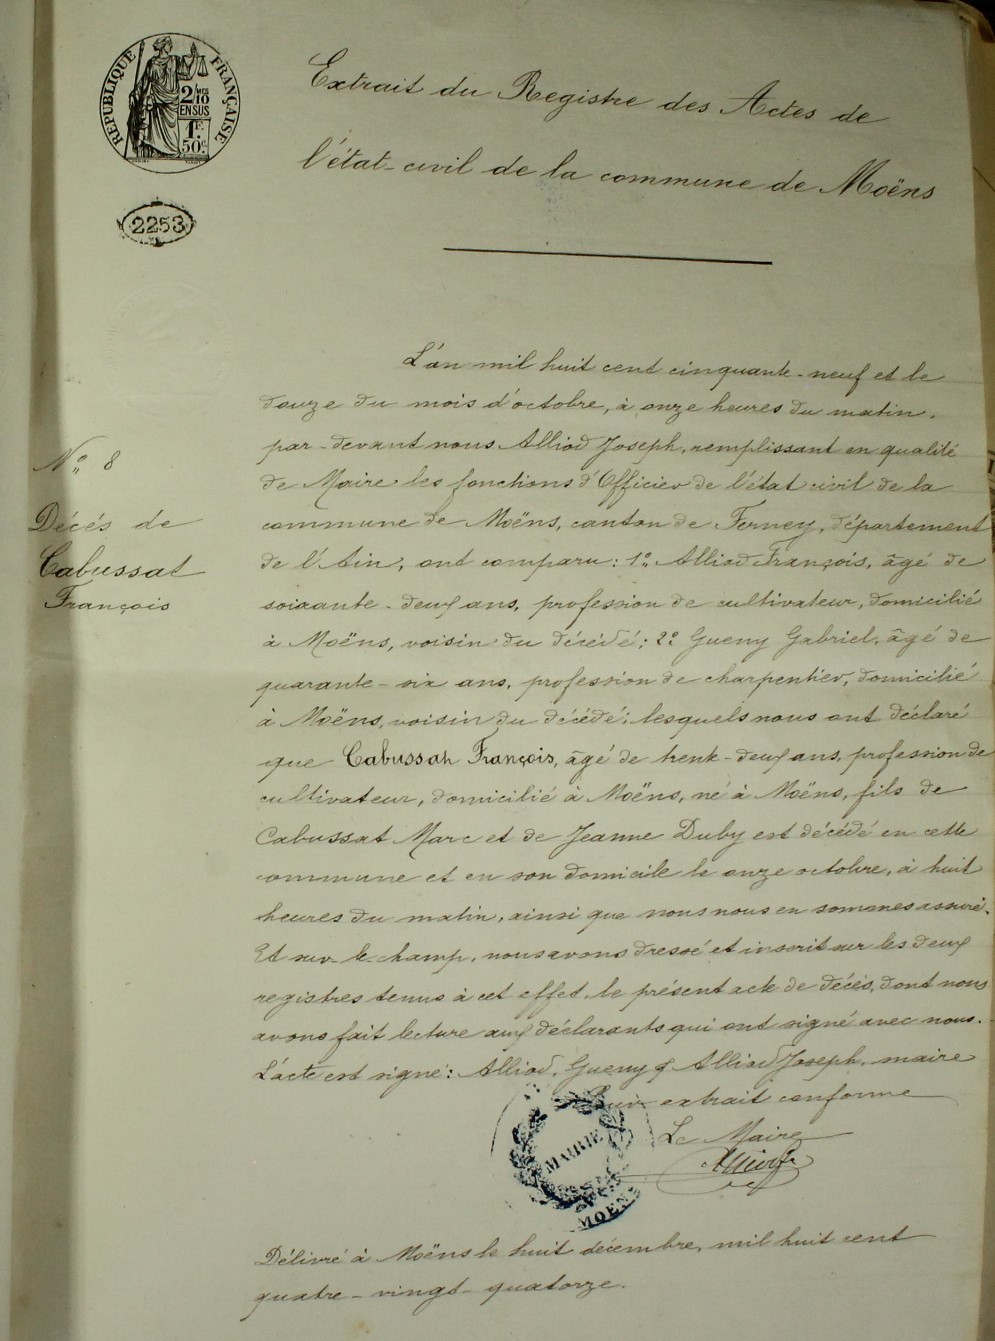 RÉPUBLIQUE FRANÇAISE
2/10 MES
EN SUS
1F.
50c.
2253
Extrait du Registre des Actes de
l'état-civil de la commune de Moëns
N° 8
Décés de
Cabussat
François
L'an mil huit cent cinquante-neuf et le
douze du mois d'octobre, à onze heures du matin,
par-devant nous Alliod Joseph, remplissant en qualité
de Maire les fonctions d'Officier de l'état civil de la
commune de Moëns, canton de Ferney, département
de l'Ain, ont comparu: 1° Alliod François, âgé de
soixante-deux ans, profession de cultivateur, domicilié
à Moëns, voisin du décédé; 2° Gueny Gabriel, âgé de
quarante-six ans, profession de charpentier, domicilié
à Moëns, voisin du décédé; lesquels nous ont déclaré
que Cabussat François, âgé de trente-deux ans, profession de
cultivateur, domicilié à Moëns, né à Moëns, fils de
Cabussat Marc et de Jeanne Duby est décédé en cette
commune et en son domicile le onze octobre, à huit
heures du matin, ainsi que nous nous en sommes assuré.
Et sur-le-champ, nous avons dressé et inscrit sur les deux
registres tenus à cet effet, le présent acte de décès, dont nous
avons fait lecture aux déclarants qui ont signé avec nous.
L'acte est signé: Alliod, Gueny & Alliod Joseph, maire
Pour extrait conforme
Le Maire
MAIRIE
MOËNS
Délivré à Moëns le huit décembre, mil huit cent
quatre-vingt-quatorze.